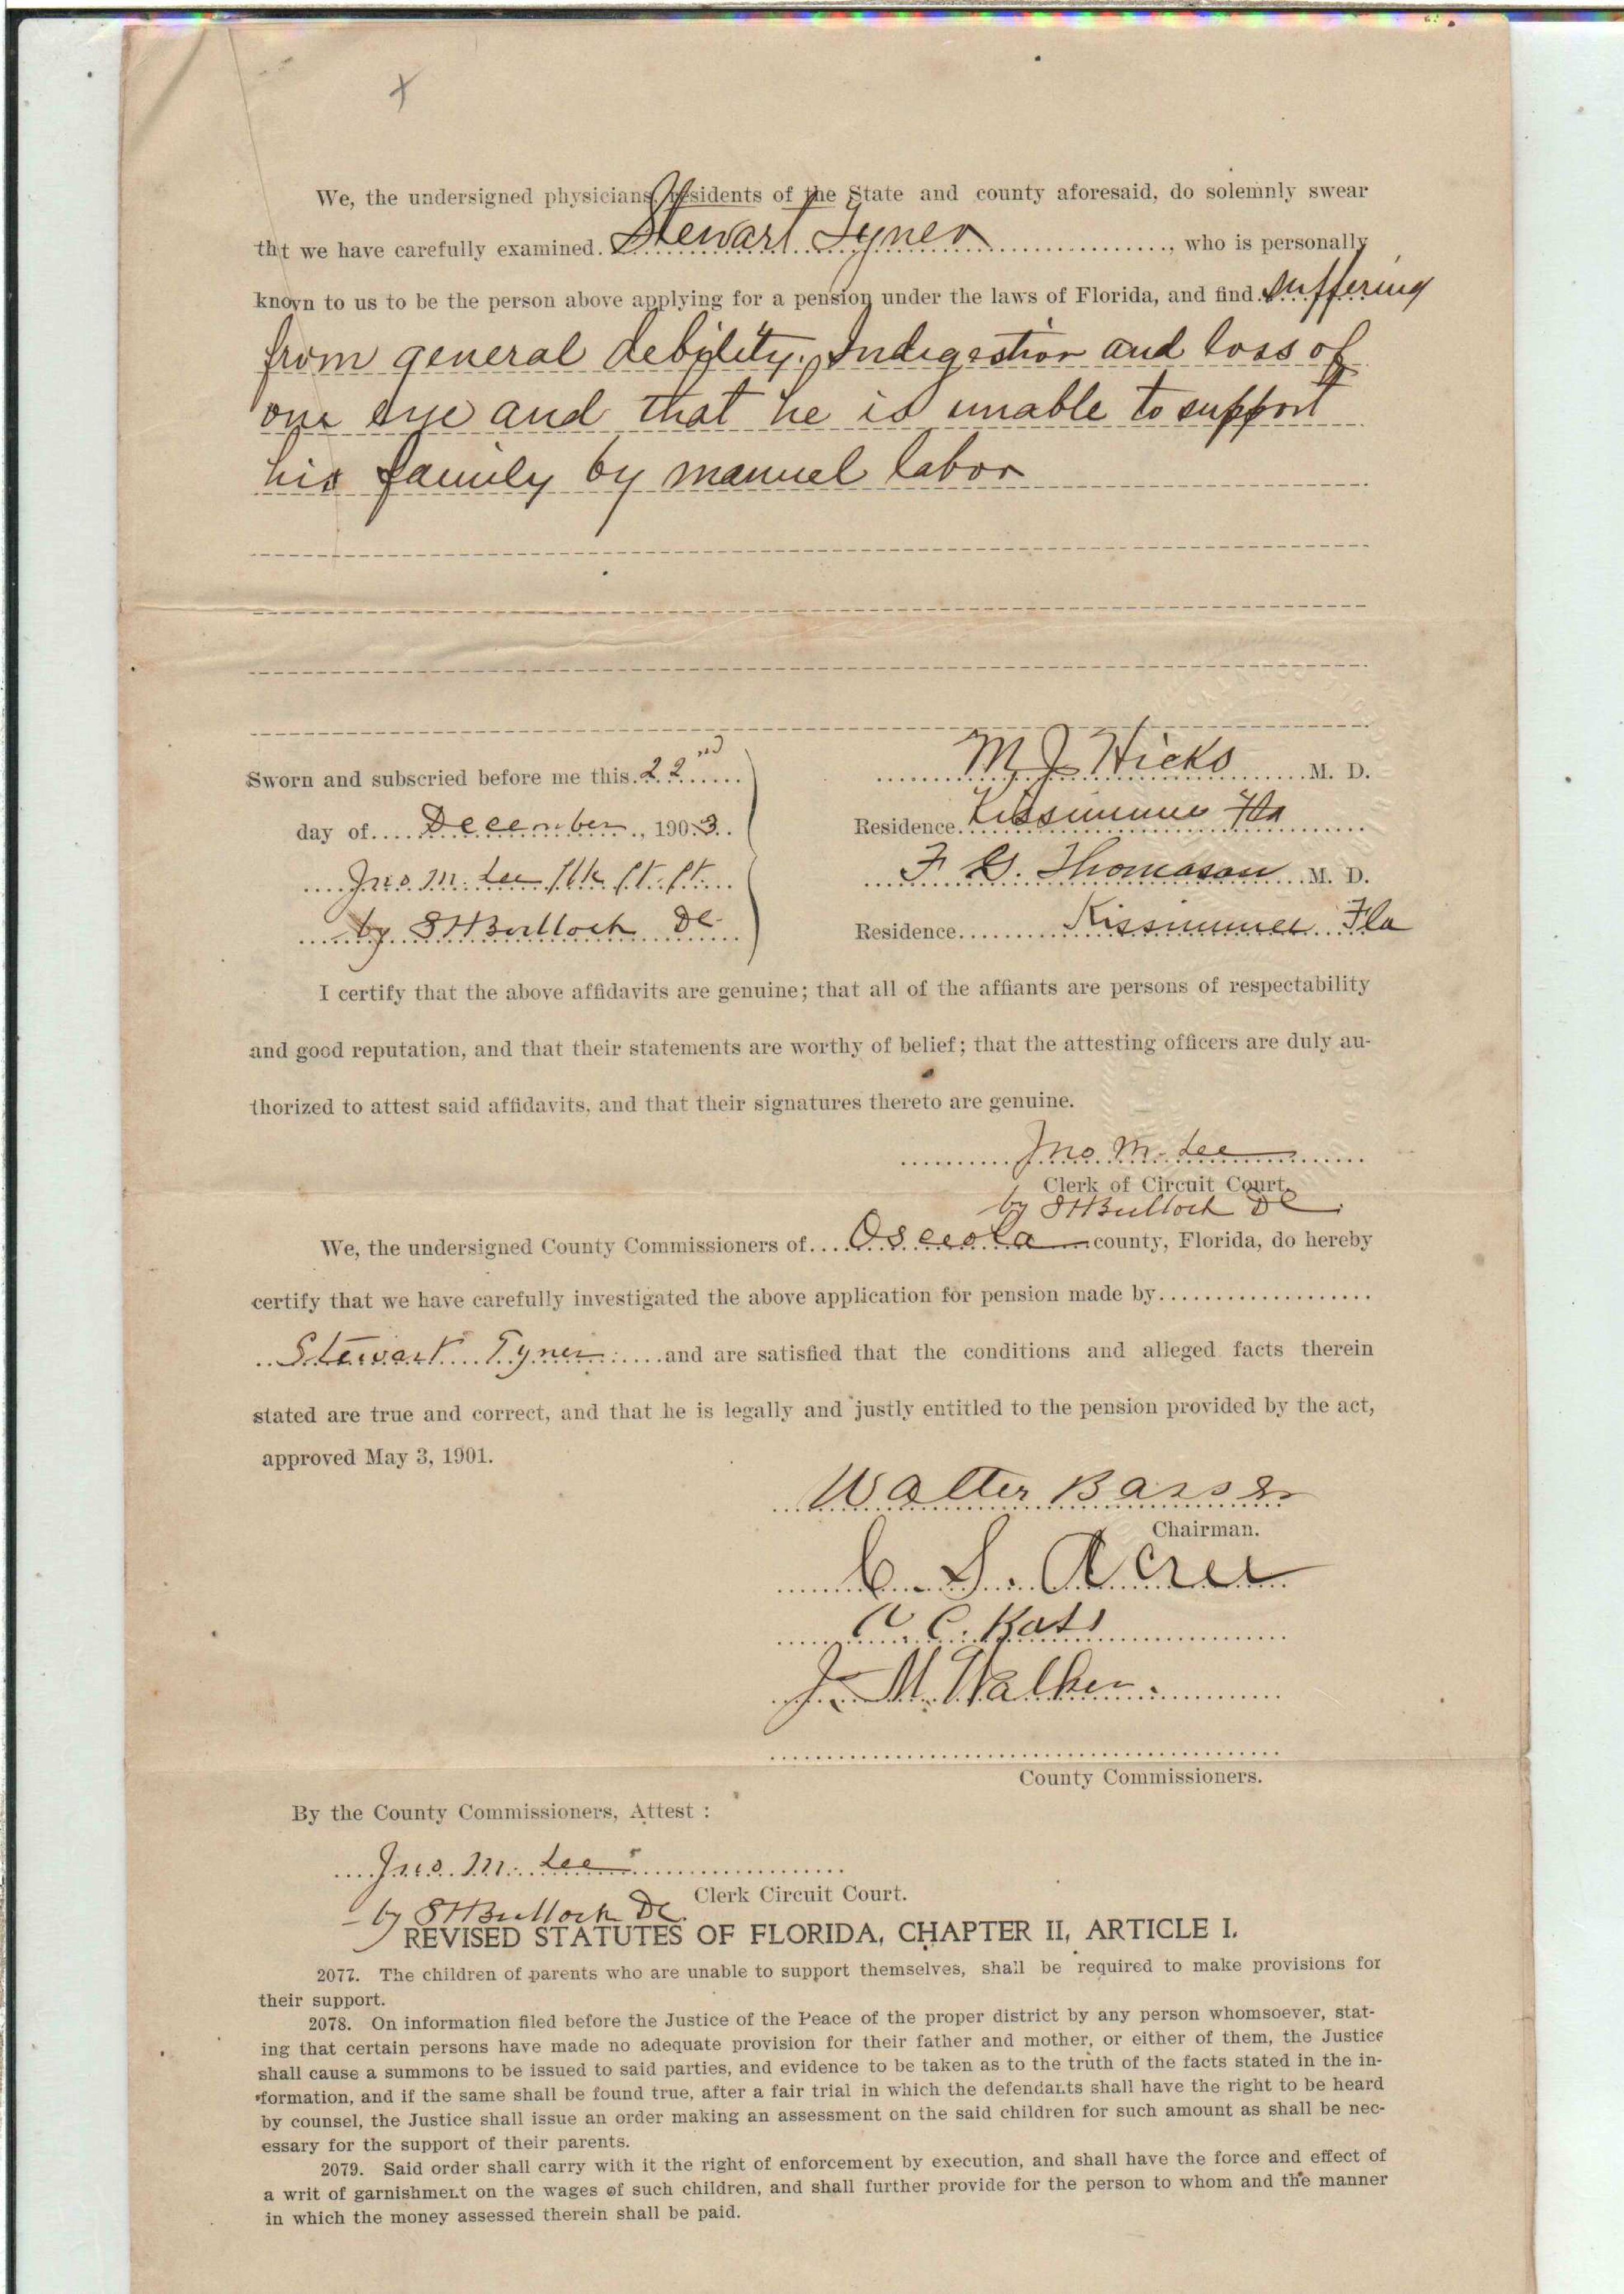 We, the undersigned physicians, residents of the State and county aforesaid, do solemnly swear
tht we have carefully examined. Stewart Tyner ......................, who is personally
known to us to be the person above applying for a pension under the laws of Florida, and find suffering
from general debility, Indigestion and loss of
one eye and that he is unable to support
his family by manuel labor
Sworn and subscried before me this 22nd
day of.... December ., 1903.
Jno. M. Lee Clk Ct. Ct.
by S H Bullock DC
M J Hicks M. D.
Residence. Kissimmee Fla
F G. Thomason M. D.
Residence Kissimmee Fla
I certify that the above affidavits are genuine; that all of the affiants are persons of respectability
and good reputation, and that their statements are worthy of belief; that the attesting officers are duly au-
thorized to attest said affidavits, and that their signatures thereto are genuine.
Jno M. Lee
Clerk of Circuit Court.
by S H Bullock DC.
We, the undersigned County Commissioners of.... Osceola county, Florida, do hereby
certify that we have carefully investigated the above application for pension made by...................
Stewart Tyner and are satisfied that the conditions and alleged facts therein
stated are true and correct, and that he is legally and justly entitled to the pension provided by the act,
approved May 3, 1901.
Walter Bass
Chairman.
C. S. Acree
C. Kats
J. M. Walker
County Commissioners.
By the County Commissioners, Attest :
Jno. M. Lee
Clerk Circuit Court.
by S H Bullock DC.
REVISED STATUTES OF FLORIDA, CHAPTER II, ARTICLE I.
2077. The children of parents who are unable to support themselves, shall be required to make provisions for
their support.
2078. On information filed before the Justice of the Peace of the proper district by any person whomsoever, stat-
ing that certain persons have made no adequate provision for their father and mother, or either of them, the Justice
shall cause a summons to be issued to said parties, and evidence to be taken as to the truth of the facts stated in the in-
formation, and if the same shall be found true, after a fair trial in which the defendants shall have the right to be heard
by counsel, the Justice shall issue an order making an assessment on the said children for such amount as shall be nec-
essary for the support of their parents.
2079. Said order shall carry with it the right of enforcement by execution, and shall have the force and effect of
a writ of garnishment on the wages of such children, and shall further provide for the person to whom and the manner
in which the money assessed therein shall be paid.